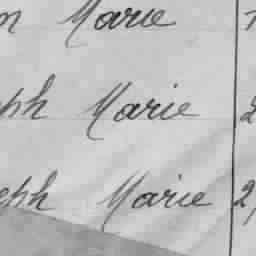 n Marie
ph Marie 2
eph Marie 2,